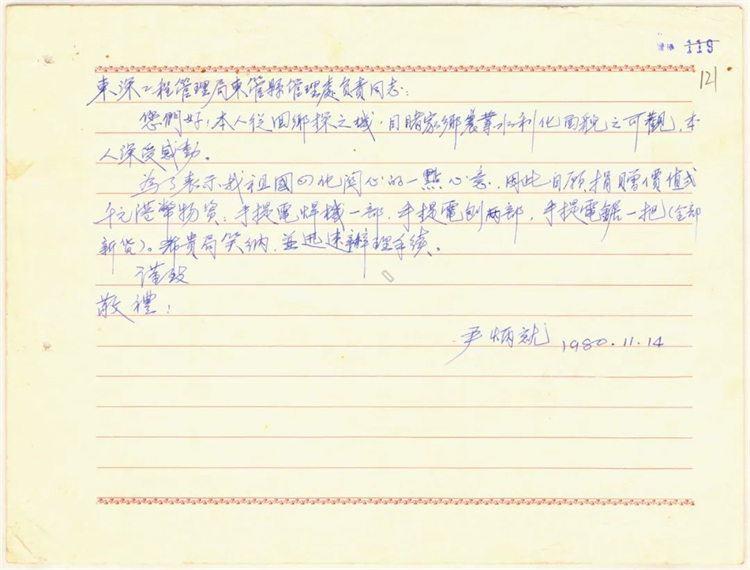 119
121
東深工程管理局東管縣管理處负责同志:
您們好!本人從回鄉探之機,目睹家鄉農業水利化面貌之可觀,本
人深受感動。
為了表示我祖國四化関心的一點心意,因此自願捐贈價值弍
千元港幣物资,手提電焊機一部,手提電刨两部,手提電鋸一把(全部
新货)。希贵局笑纳,並迅速辦理手续。
谨致
敬禮!
尹炳就 1980.11.14